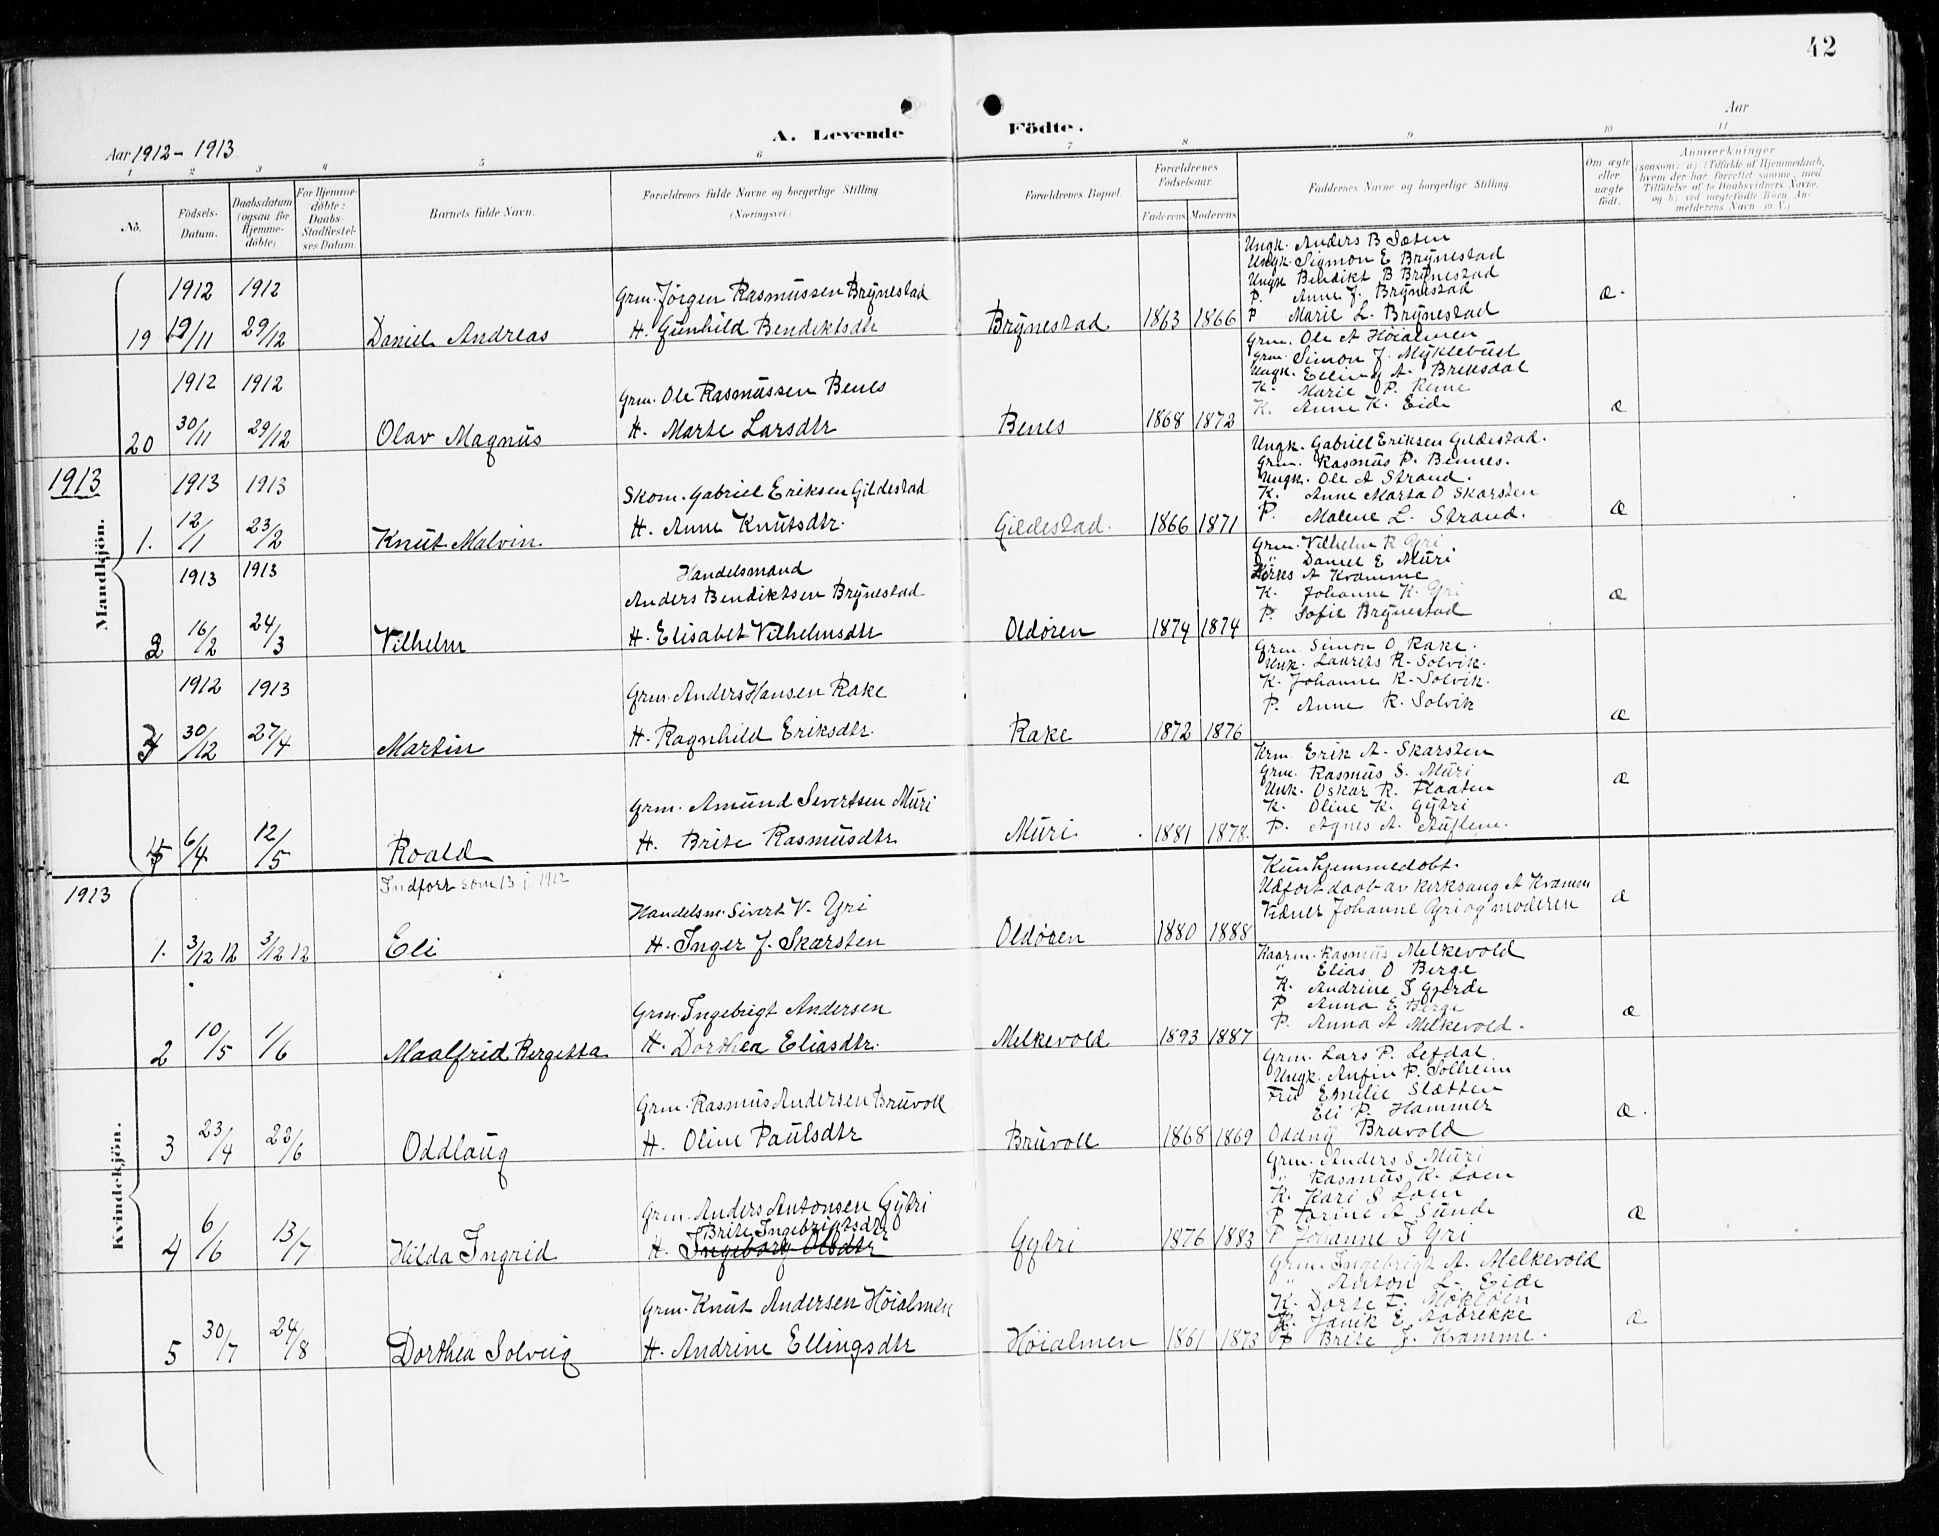 42
A. Levende Födte.
Aar 1912 - 1913
Aar
1 2 3 4 5 6 7 8 9 10 11
No.
Födsels-Datum.
Daabsdatum (ogsaa for Hjemmedöbte)
For Hjemmedöbte: Daabs-Stadfæstelses Datum.
Barnets fulde Navn.
Forældrenes fulde Navne og borgerlige Stilling (Næringsvei)
Forældrenes Bopæl.
Forældrenes Födselsaar.
Faderens Moderens
Faddernes Navne og borgerlige Stilling.
Om ægte eller uægte födt.
Anmærkninger
(saasom: a) i Tilfælde af Hjemmedaab, hvem der har forrettet samme, med Tilföielse af to Daabsvidners Navne, og b) ved uægtefödte Börn Anmelderens Navn m. V.)
Mandkjön.
19 1912 19/11 1912 29/12 Daniel Andreas
Grm. Jörgen Rasmussen Brynestad
H. Gunhild Bendiktsdtr
Brynestad 1863 1866
Ungk. Anders B Sæten
Ungk. Sigmon E Brynestad
Ungk Bendikt B Brynestad
P. Anne J. Brynestad
P Marie L. Brynestad
æ.
20 1912 30/11 1912 29/12 Olav Magnus
Grm. Ole Rasmussen Benes
H. Marte Larsdtr
Benes 1868 1872
Grm. Ole A Höialmen
Grm. Simon J. Myklebust
Ungk. Elling A. Briksdal
K. Marie P. Rene
K. Anne K. Eide
æ
1913
1. 1913 12/1 1913 23/2 Knut Malvin.
Skom. Gabriel Eriksen Gildestad
H. Anne Knutsdtr.
Gildestad. 1866 1871
Ungk. Gabriel Eriksen Gildestad.
Grm. Rasmus P. Bennes.
Ungk. Ole A Strand.
K. Anne Marta O Skarsten
P. Malene L. Strand.
æ
2 1913 16/2 1913 24/3 Vilhelm
Handelsmand
Anders Bendiktsen Brynestad
H. Elisabet Vilhelmsdtr
Oldören 1874 1874
Grm. Vilhelm R Yri
" Daniel E Muri
Kirks A Kvamme
K. Johanne K. Yri
P. Sofie Brynestad
æ
3 1912 30/12 1913 27/4 Martin
Grm. Anders Hansen Rake
H. Ragnhild Eriksdtr.
Rake 1872 1876
Grm. Simon O Rake.
Unk. Laurits R. Solvik.
K. Johanne R. Solvik.
P. Anne R. Solvik
æ
4 6/4 12/5 Roald
Grm. Amund Sivertsen Muri
H. Brite Rasmusdtr
Muri 1881 1878.
Krm. Erik A. Skarsten
Grm. Rasmus S. Muri
Unk. Oskar R. Flaaten
K. Oline K. Gytri
P. Agnes A. Auflem.
æ
1913
Kvindekjön.
Indfort som 13 i 1912
1. 3/12 12 3/12 12 Eli
Handelsm. Sivert V. Yri
H. Inger J. Skarsten
Oldören 1880 1888
Kun hjemmedobt.
Udfort daab av kirksang A Kvamm
Vidner Johanne Yri og moderen
æ
2 10/5 1/6 Maalfrid Bergetta
Grm. Ingebrigt Andersen
H. Dorthea Eliasdtr.
Melkevold 1893 1887
Kaarm. Rasmus Melkevold
" Elias O Berge
K. Andrine S Gjerde
P Anna E Berge
P. Anna A Melkevold.
æ
3 23/4 22/6 Oddlaug
Grm. Rasmus Andersen Bruvoll
H. Oline Paulsdtr
Bruvoll 1868 1869
Grm. Lars P. Lefdal.
Ungk. Anfin P. Solheim
Fru Emilie Slætten
Eli P. Hammer
Oddny Bruvold
æ.
4 6/6 13/7 Hilda Ingrid
Grm. Anders Antonsen Gytri
Brite Ingebrigtsdtr
H. Ingeborg Olsdtr
Gytri 1876 1883
Grm. Anders S Muri
" Rasmus K. Loen
K. Kari S Loen
P Torine A Sunde
P Johanne S Yri
æ
5 30/7 24/8 Dorthea Solveig
Grm. Knut Andersen Höialmen
H. Andrine Ellingsdtr
Höialmen 1861 1873
Grm. Ingebrigt A. Melkevold
" Anton L. Eide
K. Dorte F. Mökløen
K. Janik E Aabrekke
P Brite J. Kvamme.
æ